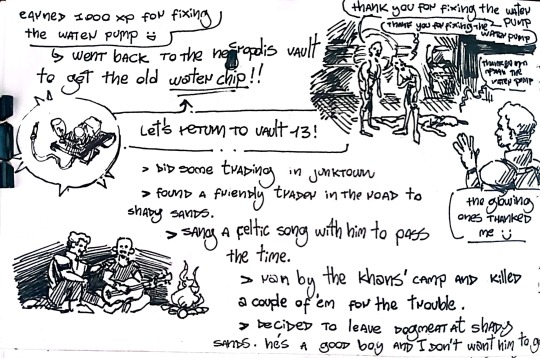 EARNED 1000 XP FOR FIXING
THE WATER PUMP
WENT BACK TO THE NECROPOLIS VAULT
TO GET THE OLD WATER CHIP!!
THANK YOU FOR FIXING THE WATER
PUMP
THANK YOU FOR FIXING THE
WATER PUMP
THE
WATER PUMP
LET'S RETURN TO VAULT-13!
THE GLOWING
ONES THANKED
ME
> DID SOME TRADING IN JUNKTOWN
> FOUND A FRIENDLY TRADER IN THE ROAD TO
SHADY SANDS.
> SANG A FELTIC SONG WITH HIM TO PASS
THE TIME.
> RAN BY THE KHANS' CAMP AND KILLED
A COUPLE OF 'EM FOR THE TROUBLE.
> DECIDED TO LEAVE DOGMEAT AT SHADY
SANDS. HE'S A GOOD BOY AND I DON'T WANT HIM TO